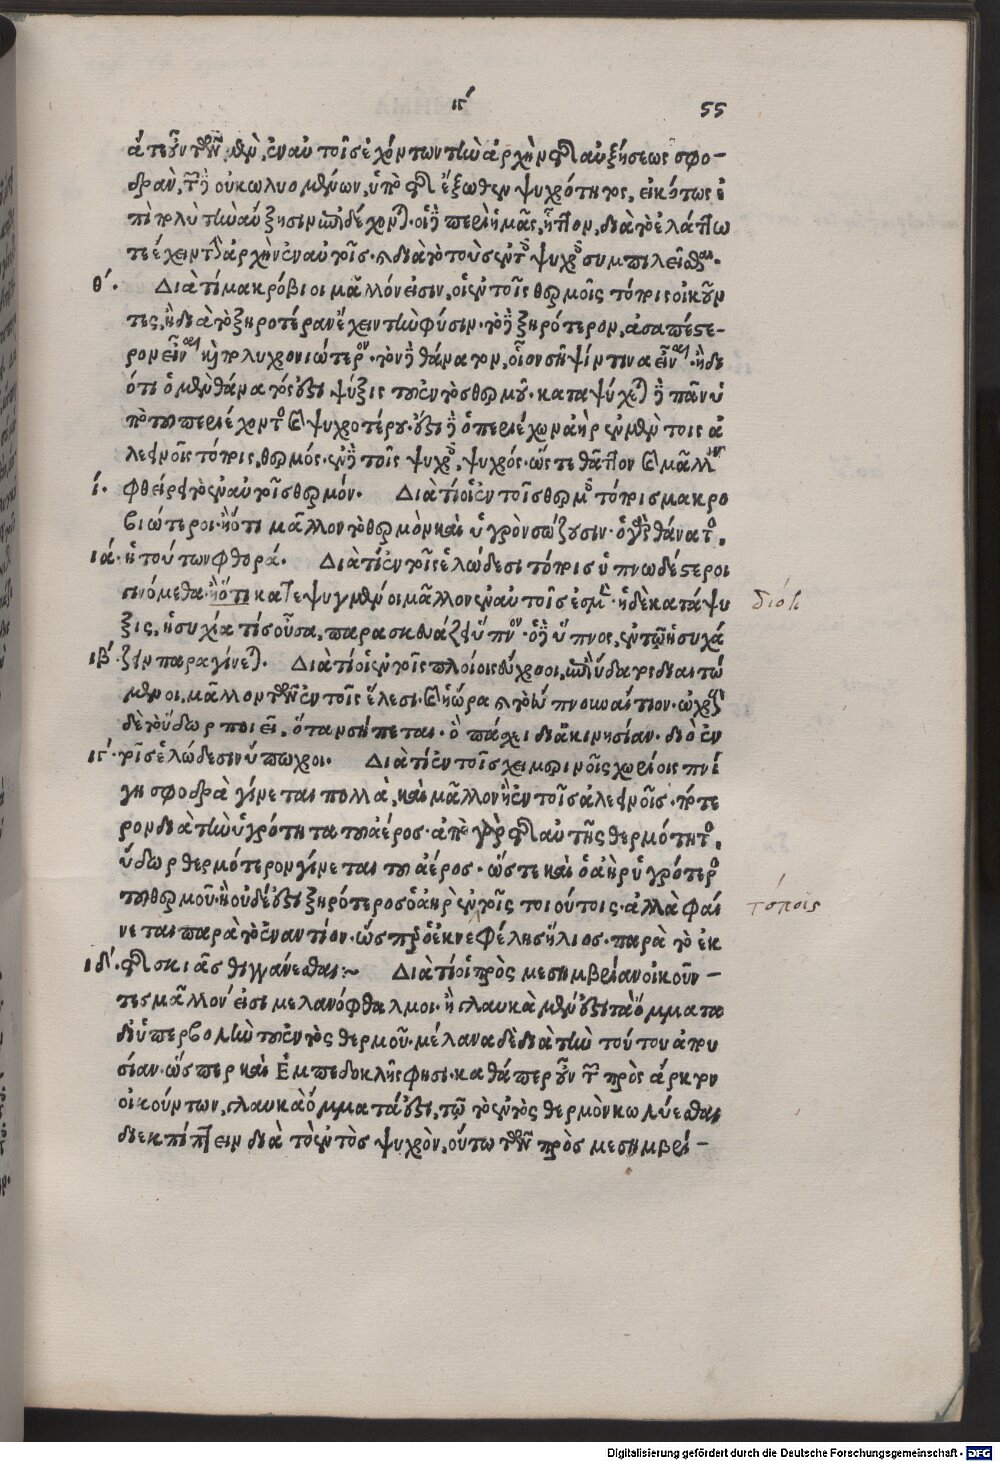 ιδʹ 55
ἅτε οὖν τῶν μὲν, ἐν αὑτοῖς ἐχόντων τὴν ἀρχὴν τῆς αὐξήσεως σφο-
δρὰν, τῶν δὲ οὐ κωλυομένων, ὑπὸ τῆς ἔξωθεν ψυχρότητος, εἰκότως ἐ
πὶ πολὺ τὴν αὔξησιν ἐπιδέχονται. οἱ δὲ περὶ ἡμᾶς, ἧττον, διὰ τὸ ἐλάττω
τε ἔχειν τὴν ἀρχὴν ἐν αὑτοῖς. καὶ διὰ τὸ τοὺς ἐν τοῖς ψυχροῖς συμπιλεῖσθαι.
θʹ. Διὰ τί μακρόβιοι μᾶλλόν εἰσιν, οἱ ἐν τοῖς θερμοῖς τόποις οἰκοῦν
τες, ἢ διὰ τὸ ξηροτέραν ἔχειν τὴν φύσιν. τὸ δὲ ξηρότερον, ἀσαπέστε-
ρον εἶναι καὶ πολυχρονιώτερον. τὸν δὲ θάνατον, οἷον σῆψίν τινα εἶναι. ἢ δι
ότι ὁ μὲν θάνατός ἐστι ψύξις τοῦ ἐντὸς θερμοῦ. καταψύχεται δὲ πᾶν ὑ
πὸ τοῦ περιέχοντος καὶ ψυχροτέρου. ἔστι δὲ ὁ περιέχων ἀὴρ ἐν μὲν τοῖς ἀ
λεεινοῖς τόποις, θερμός. ἐν δὲ τοῖς ψυχροῖς, ψυχρός. ὥστε θᾶττον καὶ μᾶλλον
ίʹ. φθείρει τὸ ἐν αὑτοῖς θερμόν. Διὰ τί οἱ ἐν τοῖς θερμοῖς τόποις μακρο
βιώτεροι. ἢ ὅτι μᾶλλον τὸ θερμὸν καὶ ὑγρὸν σώζουσιν. ὁ γὰρ θάνατος,
ιάʹ. ἡ τούτων φθορά. Διὰ τί ἐν τοῖς ἑλώδεσι τόποις ὑπνωδέστεροι
γινόμεθα. ἢ ὅτι κατεψυγμένοι μᾶλλον ἐν αὐτοῖς ἐσμέν. ἡ δὲ κατάψυ διότι
ξις, ἡσυχία τίς οὖσα, παρασκευάζει ὕπνον. ὁ δὲ ὕπνος, ἐν τῷ ἡσυχά
ιβʹ. ζειν παραγίνεται. Διὰ τί οἱ ἐν τοῖς πλοίοις εὔχροοι, ἐπὶ ὕδατος διαιτώ
μενοι, μᾶλλον τῶν ἐν τοῖς ἕλεσι. καὶ ἡ ὥρα καὶ τὸ εὔπνουν αἴτιον. ὠχροὺς
δὲ τὸ ὕδωρ ποιεῖ, ὅταν σήπεται. ὃ πάσχει δι' ἀκινησίαν. διὸ ἐν
ιγʹ. τοῖς ἑλώδεσιν ὕπωχροι. Διὰ τί ἐν τοῖς χειμερινοῖς χωρίοις πνί
γη σφοδρὰ γίνεται πολλὰ, καὶ μᾶλλον ἢ ἐν τοῖς ἀλεεινοῖς. πότε
ρον διὰ τὴν ὑγρότητα τοῦ ἀέρος. ἀπὸ γὰρ τῆς αὐτῆς θερμότητος,
ὕδωρ θερμότερον γίνεται τοῦ ἀέρος. ὥστε καὶ ὁ ἀὴρ ὑγρότερος
τοῦ θερμοῦ. ἢ οὐδέ ἐστι ξηρότερος ὁ ἀὴρ ἐν τοῖς τοιούτοις. ἀλλὰ φαί τόποις
νεται παρὰ τὸ ἐναντίον. ὥσπερ ὁ ἐκ νεφέλης ἥλιος. παρὰ τὸ ἐκ
ιδʹ. τῆς σκιᾶς θιγγάνεσθαι:~ Διὰ τί οἱ πρὸς μεσημβρίαν οἰκοῦν-
τες μᾶλλόν εἰσι μελανόφθαλμοι. ἢ γλαυκὰ μέν ἐστι τὰ ὄμματα
δι' ὑπερβολὴν τοῦ ἐντὸς θερμοῦ. μέλανα δὲ διὰ τὴν τούτου ἀπου
σίαν. ὥσπερ καὶ Ἐμπεδοκλῆς φησι. καθάπερ οὖν τῶν πρὸς ἄρκτον
οἰκούντων, γλαυκὰ ὄμματά ἐστι, τῷ τὸ ἐντὸς θερμὸν κωλύεσθαι
διεκπίπτειν διὰ τὸ ἐντὸς ψυχρὸν, οὕτω τῶν πρὸς μεσημβρί-
Digitalisierung gefördert durch die Deutsche Forschungsgemeinschaft - DFG